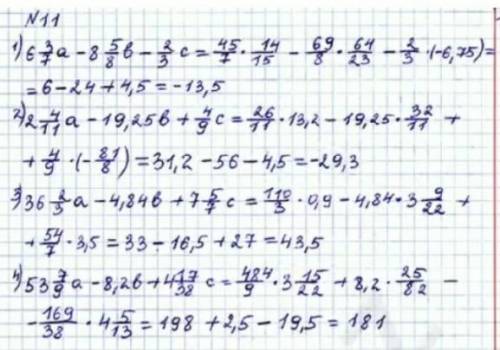 №11
1) 6 3/7 a - 8 5/8 в - 2/3 c = 45/7 · 14/15 - 69/8 · 64/23 - 2/3 · (-6,75) =
= 6 - 24 + 4,5 = -13,5
2) 2 4/11 a - 19,25 в + 4/9 c = 26/11 · 13,2 - 19,25 · 32/11 +
+ 4/9 · (-81/8) = 31,2 - 56 - 4,5 = -29,3
3) 36 2/3 a - 4,84 в + 7 5/7 c = 110/3 · 0,9 - 4,84 · 3 9/22 +
+ 54/7 · 3,5 = 33 - 16,5 + 27 = 43,5
4) 53 7/9 a - 8,2 в + 4 17/38 c = 484/9 · 3 15/22 + 8,2 · 25/82 -
- 169/38 · 4 5/13 = 198 + 2,5 - 19,5 = 181